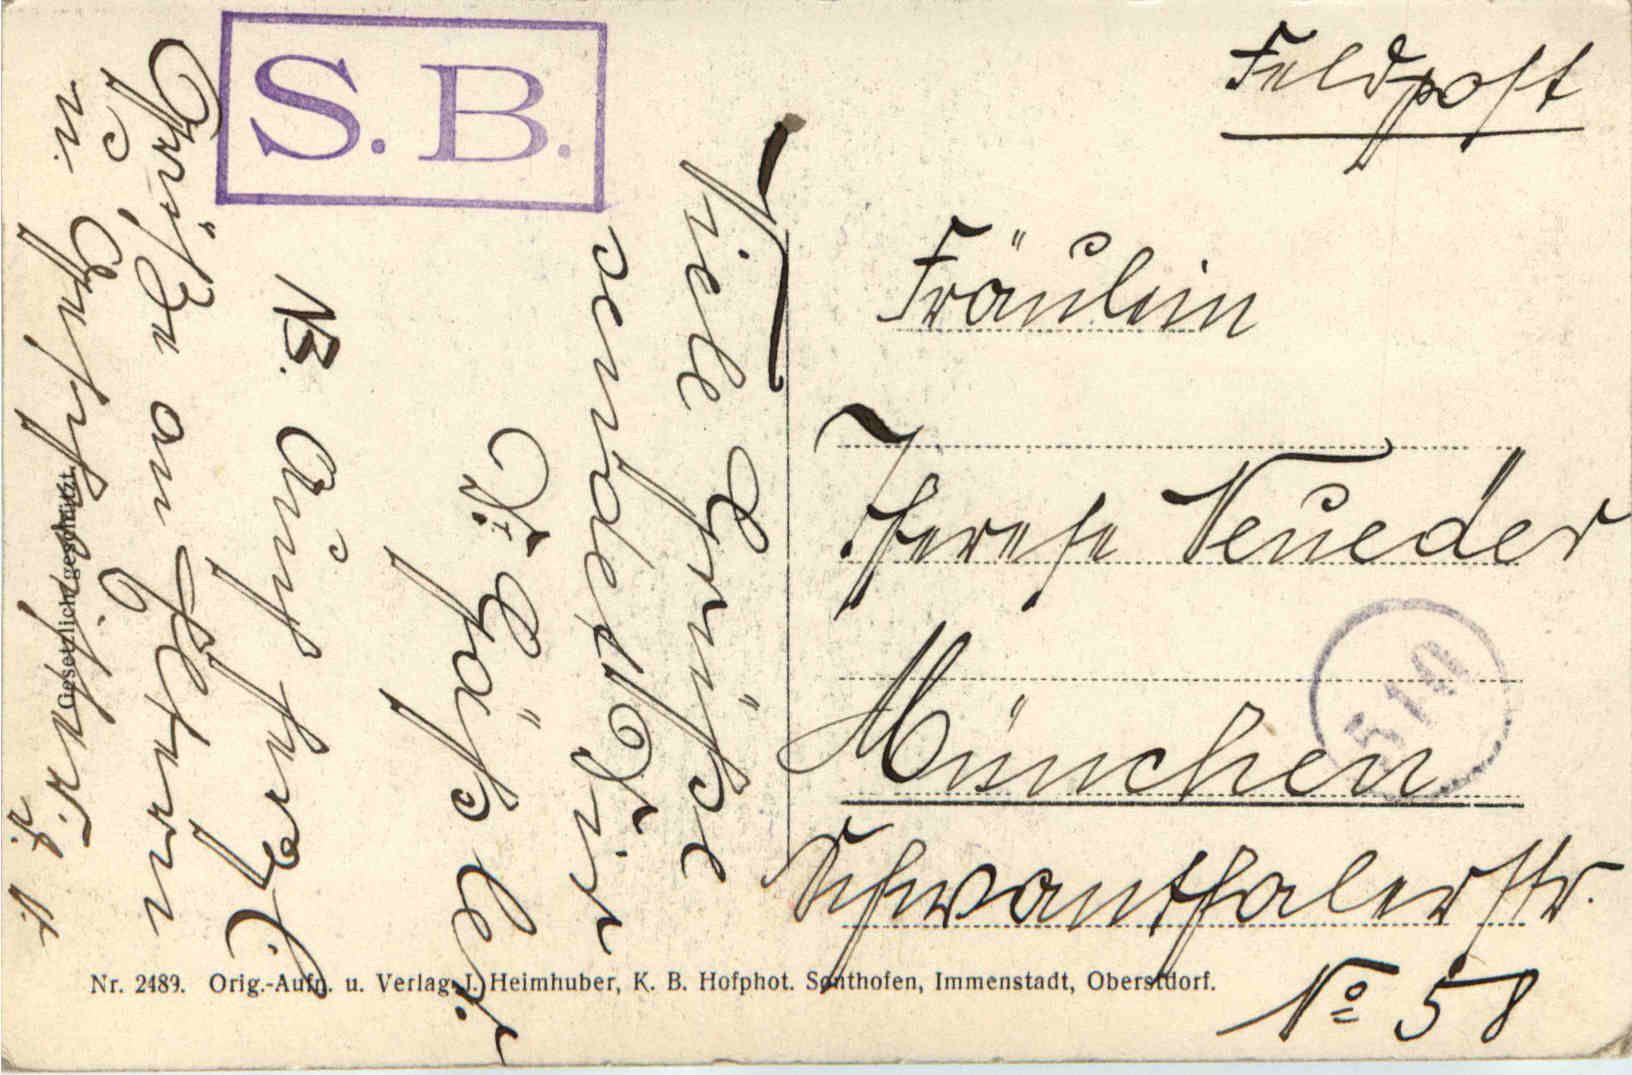 S. B.
Feldpost
Fräulein
Therese Neueder
München
Schwanthalerstr.
No 58
510
Viele Grüße
sendet Dir
Gäßler.
NB. Auch herzl.
Grüße an Eltern
u. Geschwister
Gesetzlich geschützt.
Nr. 2489. Orig.-Aufn. u. Verlag J. Heimhuber, K. B. Hofphot. Sonthofen, Immenstadt, Oberstdorf.